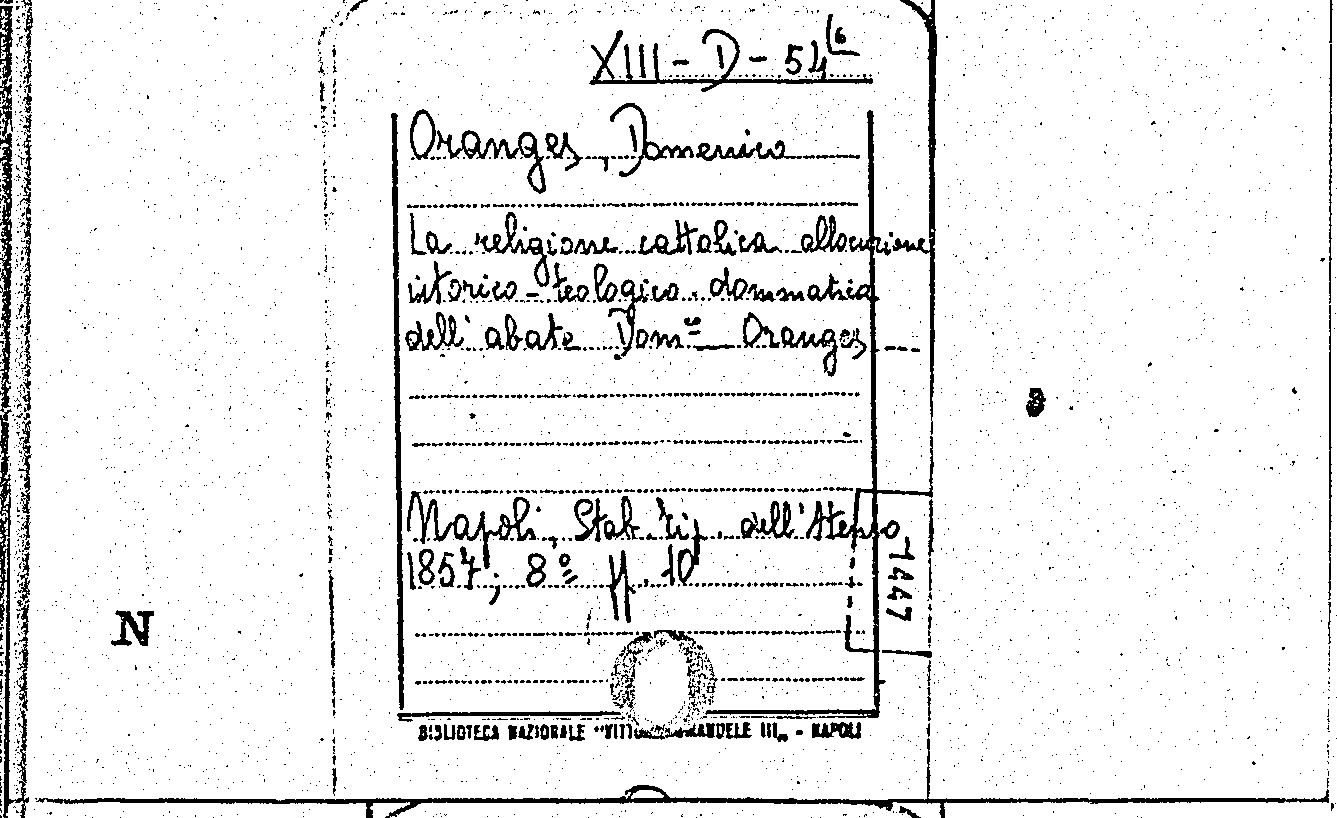 XIII - D - 54(6
Oranges, Domenico
La religione cattolica allocuzione
istorico-teologico-dommatica
dell'abate Dom.co Oranges ---
Napoli, Stab. tip. dell'Ateneo
1857; 8º pp. 10
7447
N
BIBLIOTECA NAZIONALE "VITTORIO EMANUELE III„ - NAPOLI